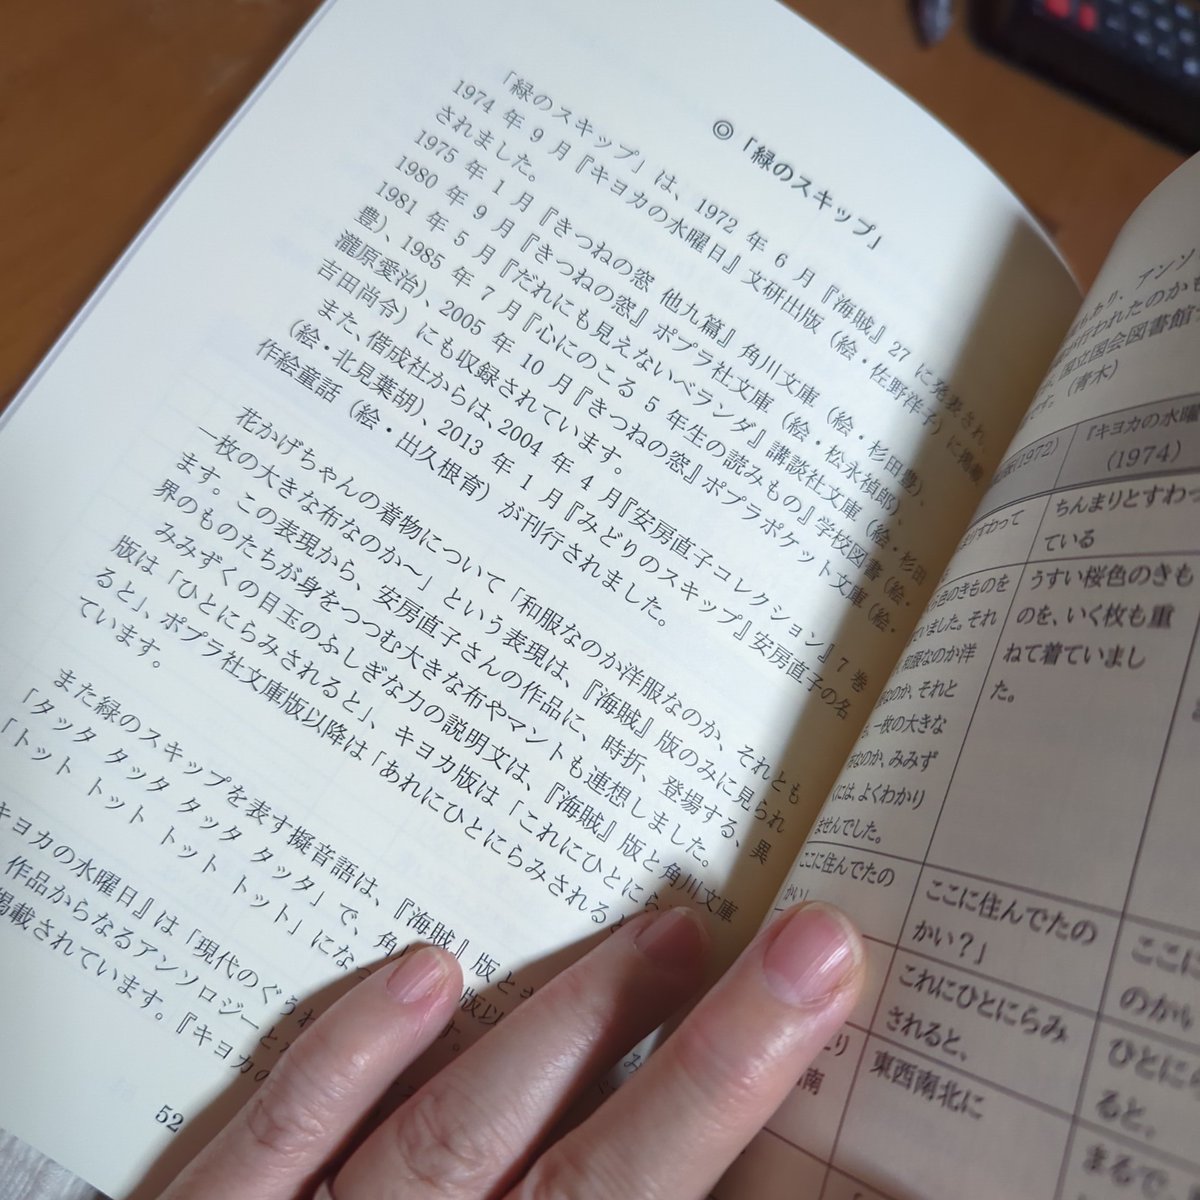 ◎「緑のスキップ」
「緑のスキップ」は、1972 年 6 月『海賊』27 に発表され、
1974 年 9 月『キヨカの水曜日』文研出版（絵・佐野洋子）に掲載
されました。
1975 年 1 月『きつねの窓 他九篇』角川文庫（絵・杉田豊）、
1980 年 9 月『きつねの窓』ポプラ社文庫（絵・松永禎郎）、
1981 年 5 月『だれにも見えないベランダ』講談社文庫（絵・杉田
豊）、1985 年 7 月『心にのこる 5 年生の読みもの』学校図書（絵・
瀧原愛治）、2005 年 10 月『きつねの窓』ポプラポケット文庫（絵・
吉田尚令）にも収録されています。
また、偕成社からは、2004 年 4 月『安房直子コレクション』7 巻
（絵・北見葉胡）、2013 年 1 月『みどりのスキップ』安房直子の名
作絵童話（絵・出久根育）が刊行されました。
花かげちゃんの着物について「和服なのか洋服なのか、それとも
一枚の大きな布なのか〜」という表現は、『海賊』版のみに見られ
ます。この表現から、安房直子さんの作品に、時折、登場する、異
界のものたちが身をつつむ大きな布やマントも連想しました。
みみずくの目玉のふしぎな力の説明文は、『海賊』版と角川文庫
版は「ひとにらみされると」、キヨカ版は「これにひとにら
ると」、ポプラ社文庫版以降は「あれにひとにらみされると
ています。
また緑のスキップを表す擬音語は、『海賊』版と
「タッタ タッタ タッタ タッタ」で、角
「トット トット トット トット」になっ
キヨカの水曜日』は「現代のぐうわ
作品からなるアンソロジーと
掲載されています。『キヨカの
52
アンソ
もあり、
行われたのかも
国立国会図書館
す。（青木）
(1972)
『キヨカの水曜
(1974)
すわって
ちんまりとすわっ
ている
色のきものを
ていました。それ
和服なのか洋
なのか、それと
一枚の大きな
なのか、みみず
くには、よくわかり
ませんでした。
うすい桜色のきも
のを、いく枚も重
ねて着ていまし
た。
ここに住んでたの
かい」
ここに住んでたの
かい？」
ここに
のかい
これにひとにらみ
されると、
ひとにら
ると、
南
東西南北に
まるで